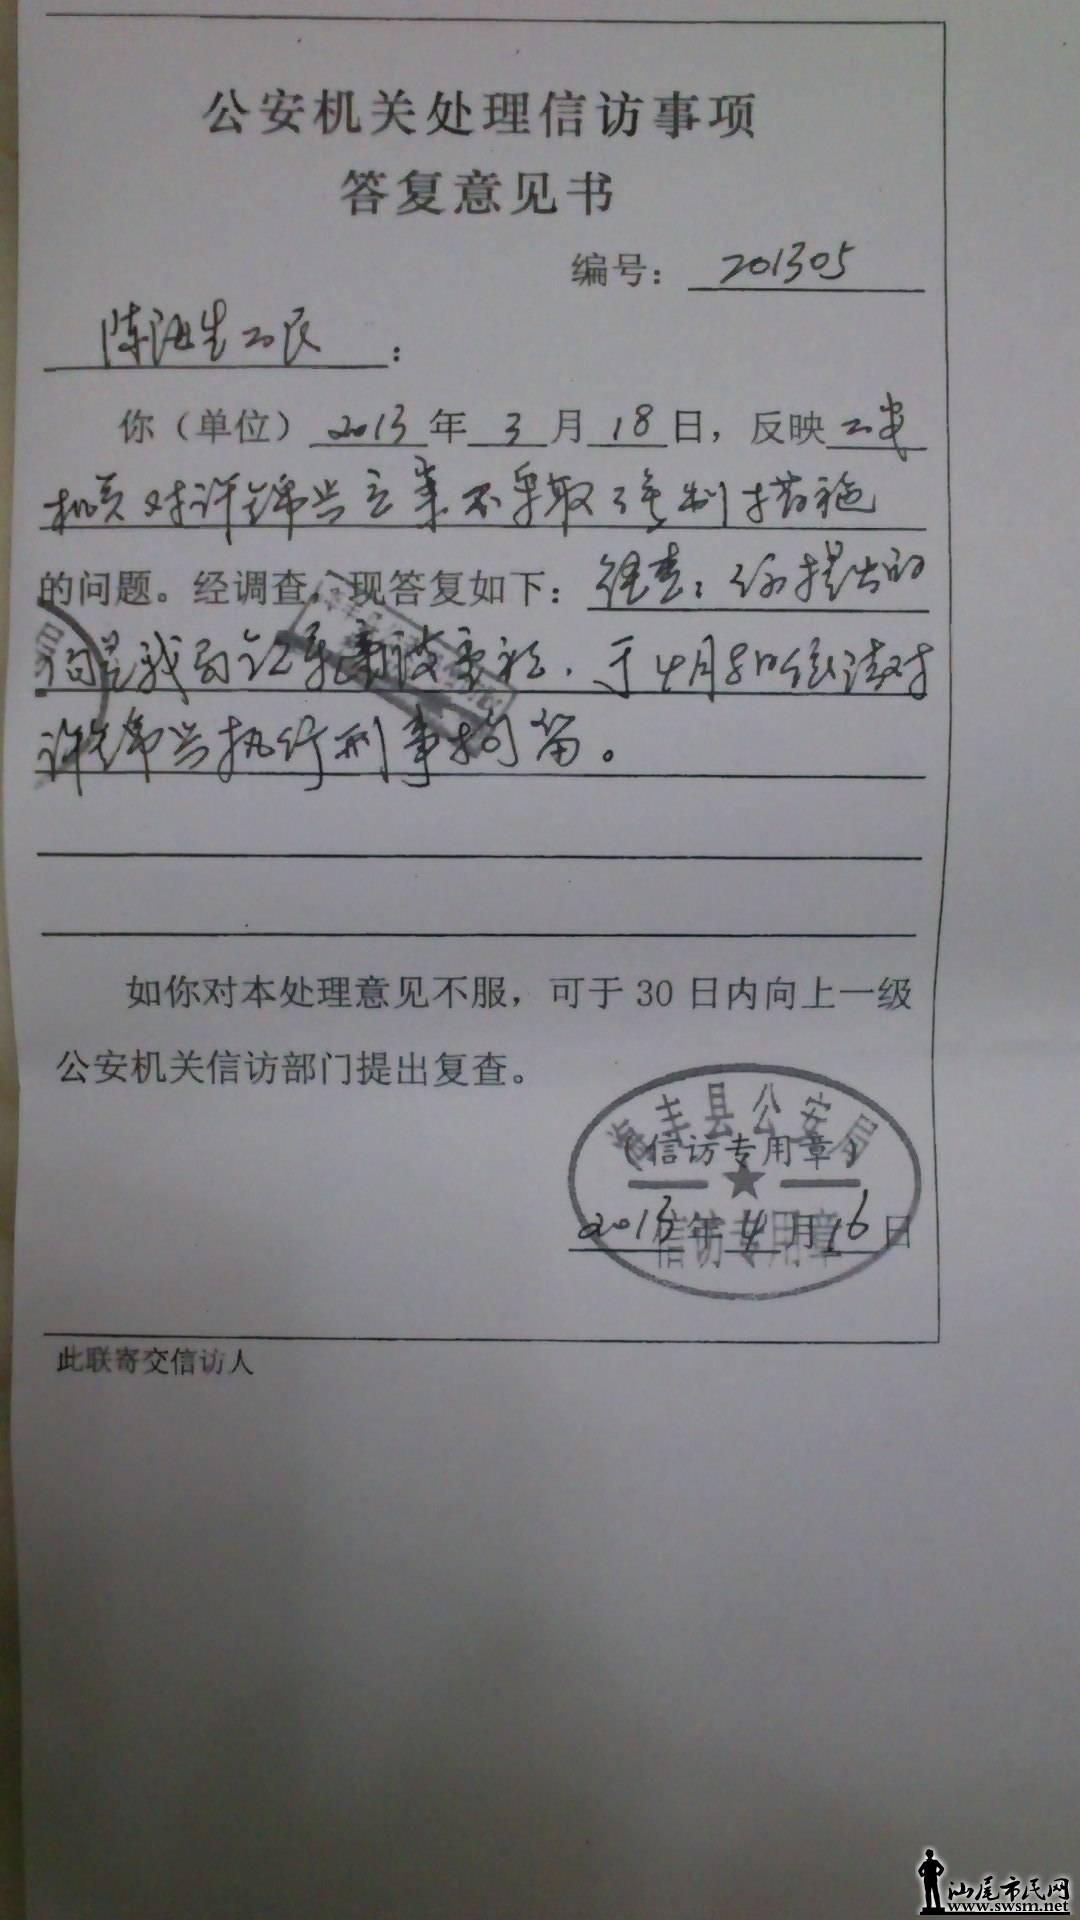 公安机关处理信访事项
答复意见书
编号： 201305
陈海生公民：
你（单位）2013年3月18日，反映公安
机关对许锦兴立案不采取强制措施
的问题。经调查，现答复如下：经查：你提出的
问题我局领导重视，于4月8日依法对
许锦兴执行刑事拘留。
如你对本处理意见不服，可于30日内向上一级
公安机关信访部门提出复查。
海丰县公安局
（信访专用章）
2013年4月16日
信访专用章
此联寄交信访人
汕尾市民网
www.swsm.net